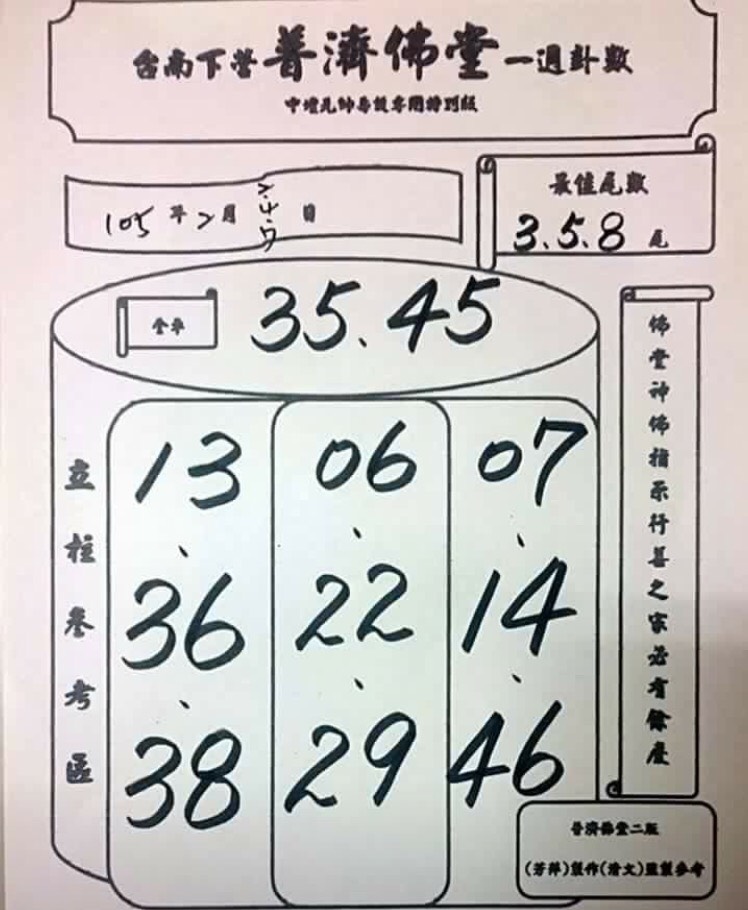 台南下營普濟佛堂一週卦數
中壇元帥易股專用特別版
105年2月2.4.7日
最佳尾數
3.5.8尾
全車 35、45
立柱參考區
13、36、38
06、22、29
07、14、46
佛堂神佛指示行善之家必有餘慶
普濟佛堂二版
(芳萍)製作(清文)監製參考